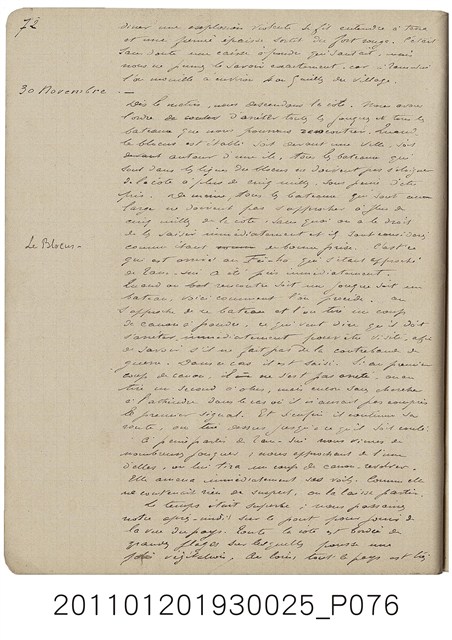 72
dîner une explosion violente se fit entendre à terre
et une fumée épaisse sortit du fort rouge. C'était
sans doute une caisse à poudre qui sautait, mais
nous ne pûmes le savoir exactement, car
l'on mouille à environ du village.
30 Novembre. —
Dès le matin, nous descendons la côte. Nous avons
l'ordre de couler d'arrêter toutes les jonques et tous les
bateaux que nous pourrons rencontrer. Quand
le blocus est établi soit devant une ville, soit
devant autour d'une île, tous les bateaux qui
sont dans la ligne du blocus ne doivent pas s'éloigner
de la côte à plus de cinq milles, sous peine d'être
pris. De même, tous les bateaux qui sont au
large ne doivent pas s'approcher à plus de
cinq milles de la côte. Sans quoi on a le droit
de les saisir immédiatement et ils sont considérés
comme étant de bonne prise. C'est ce
qui est arrivé au qui s'étant approché
de a été pris immédiatement.
Le Blocus. —
Quand on rencontre soit une jonque soit un
bateau, voici comment l'on procède. On
s'approche de ce bateau et l'on tire un coup
de canon à poudre, ce qui veut dire qu'il doit
s'arrêter immédiatement pour être visité, afin
de savoir s'il ne fait pas de la contrebande de
guerre. Dans ce cas il est saisi. Si au premier
coup de canon, il ne s'est pas arrêté, on en
tire un second à obus, mais encore sans chercher
à l'atteindre dans le cas où il n'aurait pas compris
le premier signal. Et s'enfin il continue sa
route, on tire dessus jusqu'à ce qu'il soit coulé.
À peine partis de nous vîmes de
nombreuses jonques ; nous approchant de l'une
d'elles, on lui tira un coup de canon
Elle amena immédiatement ses voiles. Comme elle
ne contenait rien de suspect, on la laissa partir.
Le temps était superbe ; nous passâmes
notre après-midi sur le pont pour jouir de
la vue du pays. Toute la côte est bordée de
grandes plages sur lesquelles pousse une
végétation. Au loin, tout le pays est
201101201930025_P076